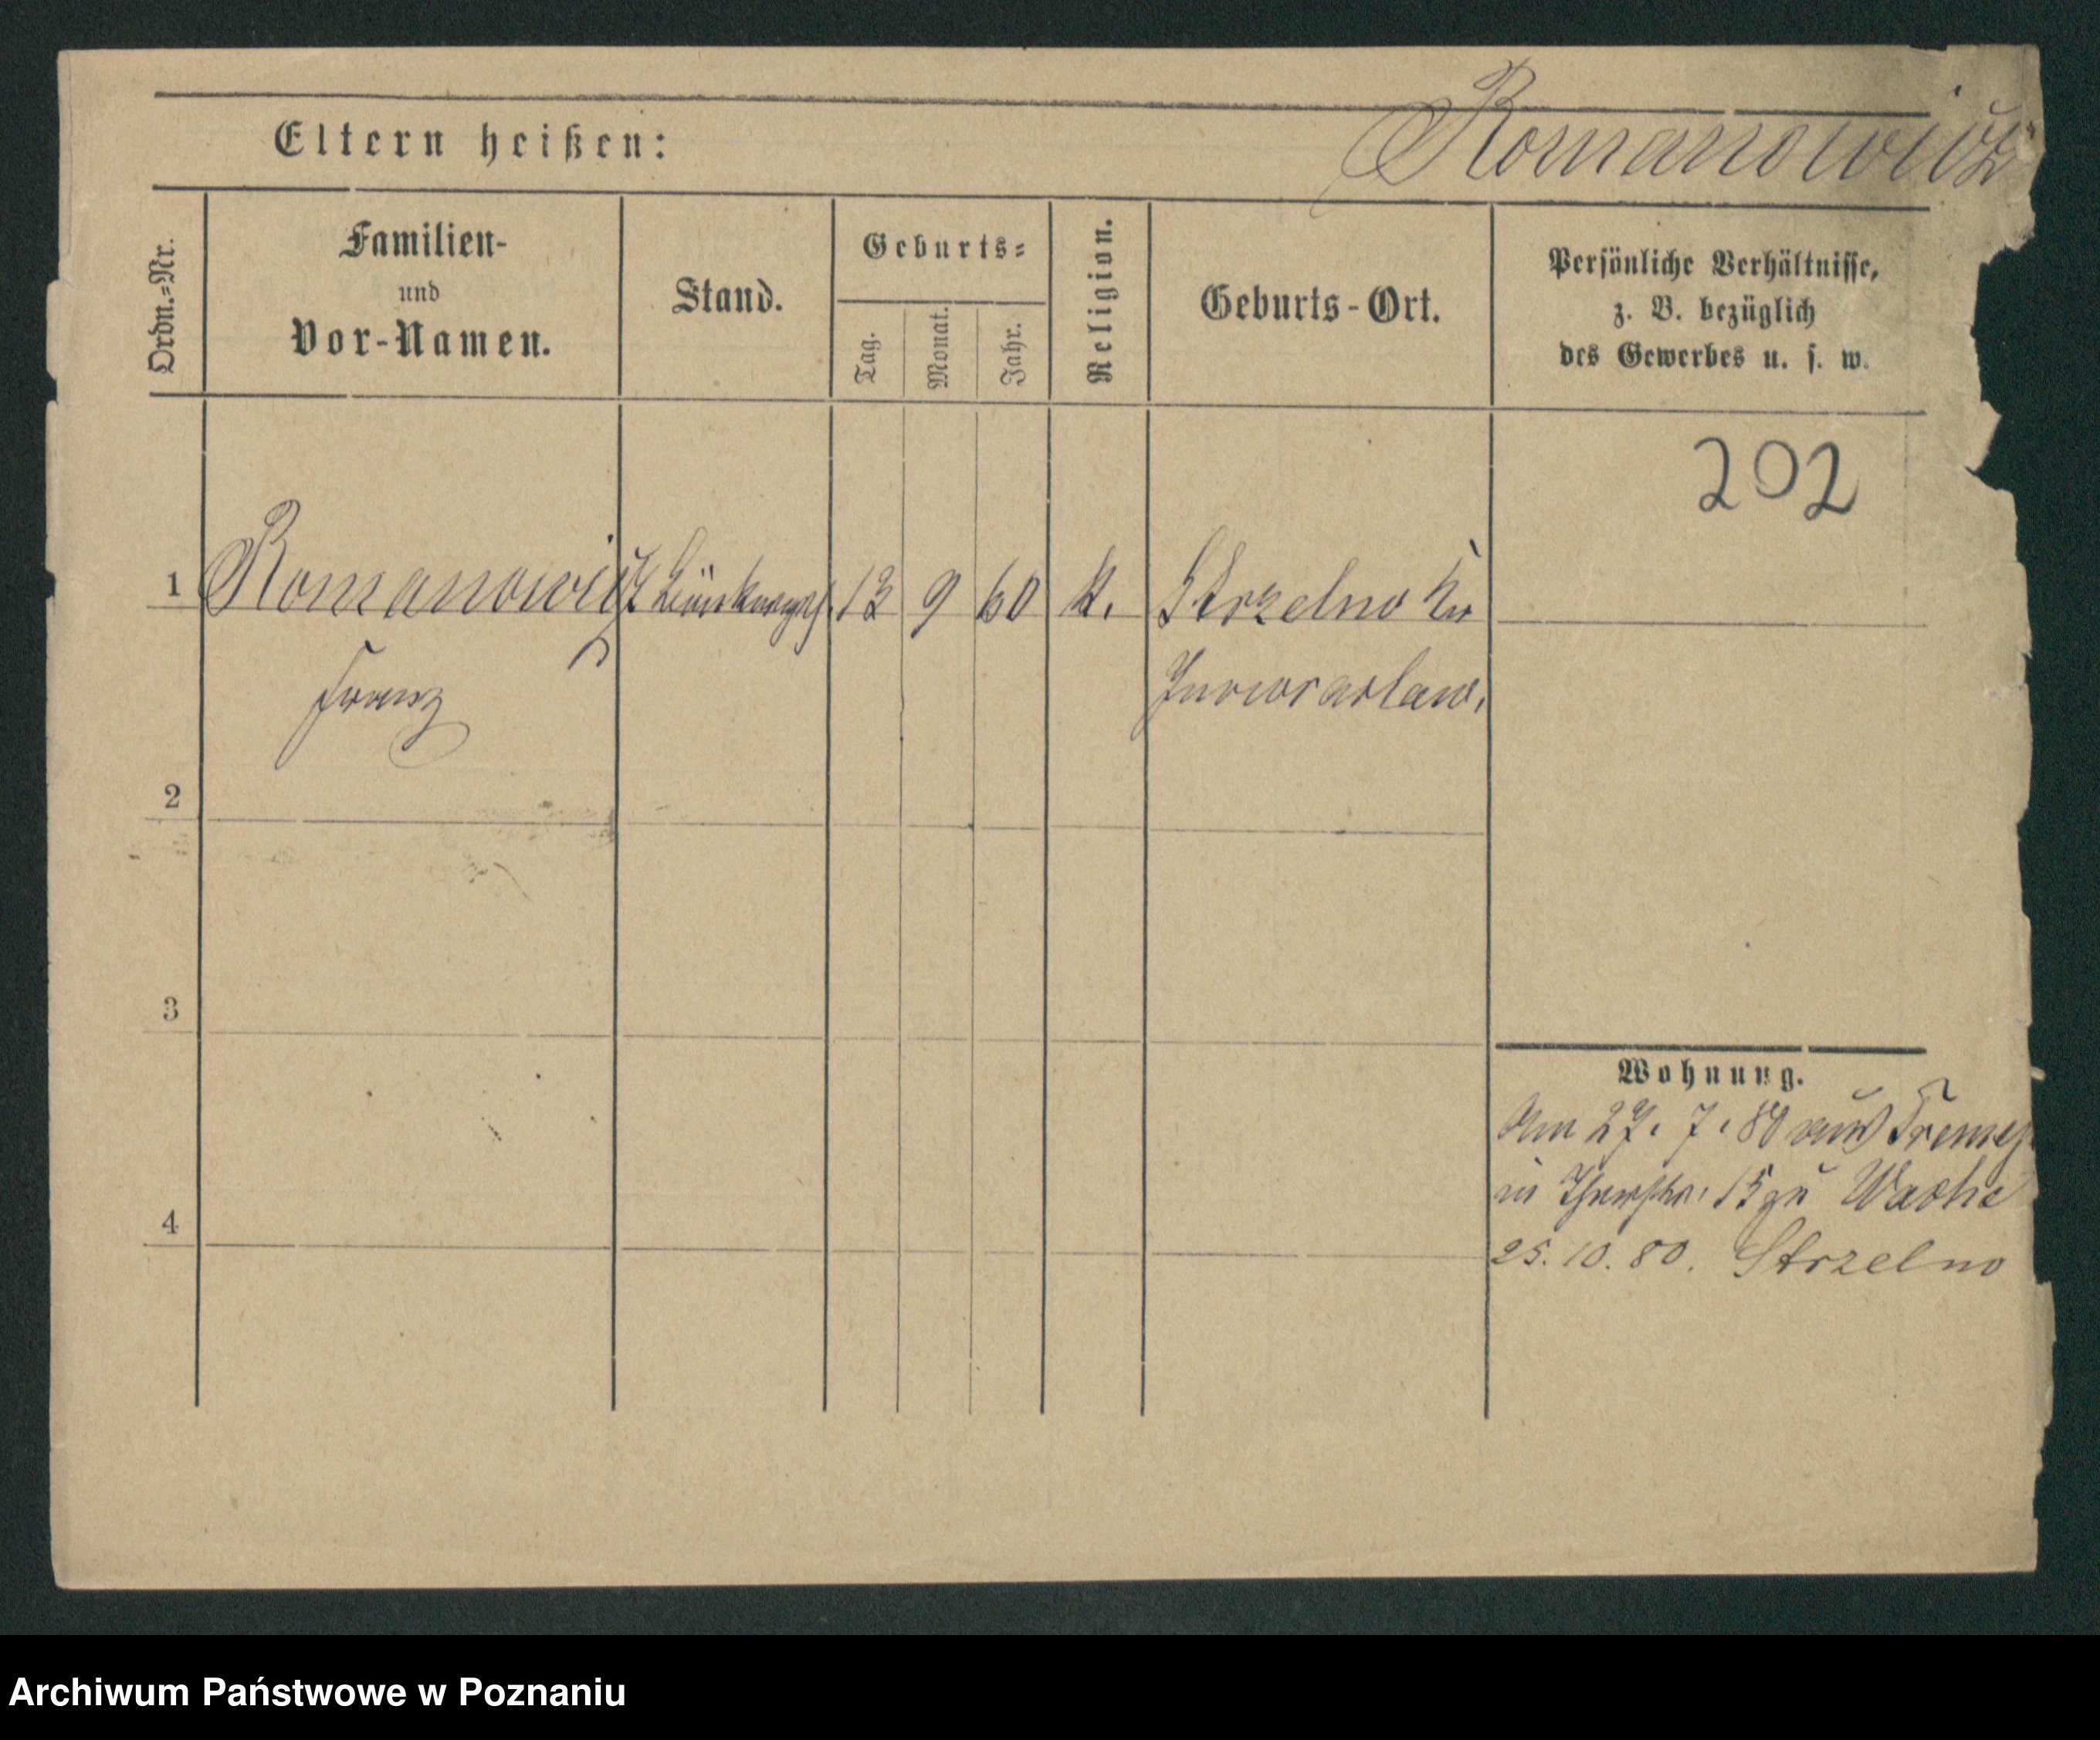 Romanowicz
Eltern heißen:
Ordn.=Nr.
Familien-
und
Vor-Namen.
Stand.
Geburts=
Tag.
Monat.
Jahr.
Religion.
Geburts-Ort.
Persönliche Verhältnisse,
z. B. bezüglich
des Gewerbes u. s. w.
202
1 Romanowicz 13 9 60 k. Strzelno Kr
Franz Inowraclaw.
2
3
4
Wohnung.
Am 27. 7. 80 aus
in 15 zu
25. 10. 80. Strzelno
Archiwum Państwowe w Poznaniu